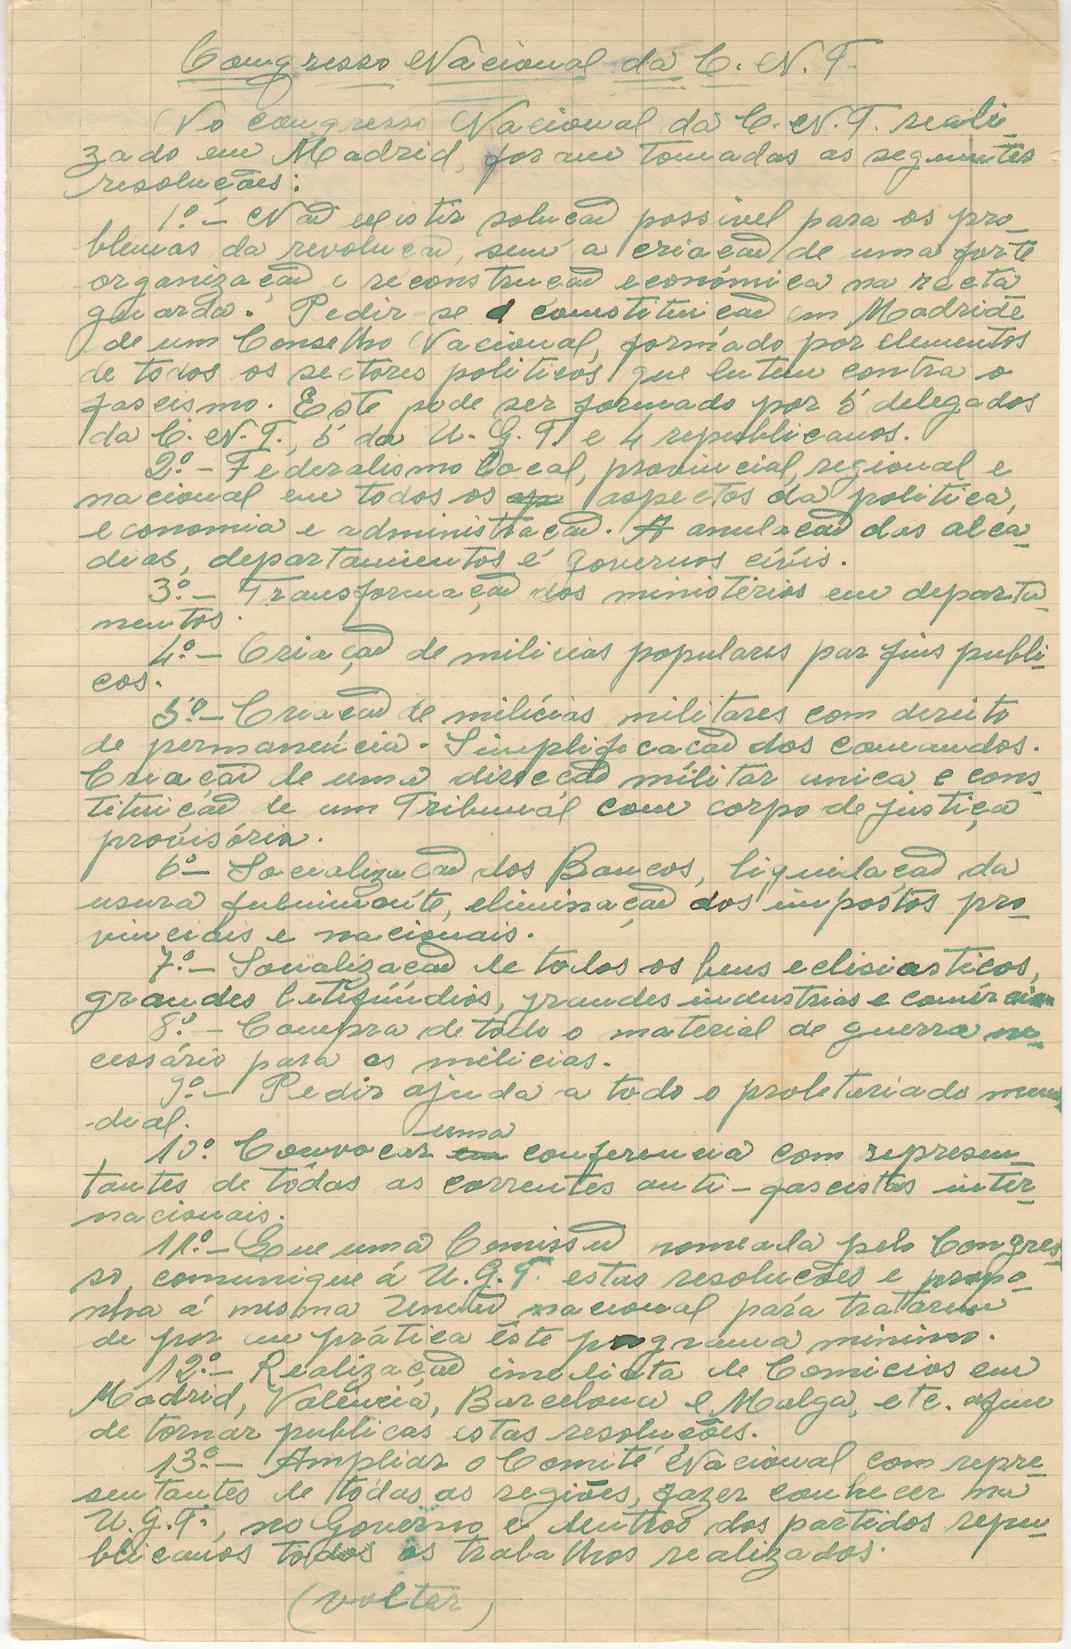 Congresso Nacional da C. N. T.
No congresso Nacional da C. N. T. reali-
zado em Madrid, foram tomadas as seguintes
resoluções:
1º.- Não existir solução possivel para os pro-
blemas da revolução, sem a criação de uma forte
organização e reconstrução económica na recta
guarda. Pedir-se a constituição em Madride
de um Conselho Nacional, formado por elementos
de todos os sectores politicos que lutem contra o
fascismo. Este pode ser formado por 5 delegados
da C. N. T., 5 da U. G. T. e 4 republicanos.
2º.- Federalismo local, provincial, regional e
nacional em todos os asp aspectos da politica,
economia e administração. A anulação das alca-
dias, departamientos é governos civis.
3º.- Transformação dos ministérios em departa-
mentos.
4º.- Criação de milicias populares par fins publi-
cos.
5º.- Criação de milicias militares com direito
de permanencia. Simplificação dos comandos.
Criação de uma direcção militar unica e cons-
tituição de um Tribunal com corpo de justiça
provisória.
6º- Socialização dos Bancos, liquidação da
usura fulminante, eliminação dos impostos pro-
vinciais e nacionais.
7º.- Socialização de todos os bens eclisiasticos,
grandes latifúndios, grandes industrias e comércio
8º.- Compra de todo o material de guerra ne-
cessário para as milicias.
9º.- Pedir ajuda a todo o proletariado mun
-dial.
10º. Convocar em uma conferencia com represen-
tantes de tôdas as correntes anti-fascistas inter-
nacionais.
11º.- Que uma Comissão nomeada pelo Congres-
so, comunique á U. G. T. estas resoluções e propo-
nha á mesma União nacional para tratarem
de por em prática êste programa minimo.
12º.- Realização imediata de Comicios em
Madrid, Valência, Barcelona e Malga, etc. afim
de tornar publicas estas resoluções.
13º.- Ampliar o Comité Nacional com repre-
sentantes de tôdas as regiões, fazer conhecer na
U. G. T., no Govêrno e dentros dos partidos repu-
blicanos todos os trabalhos realizados.
(voltar)